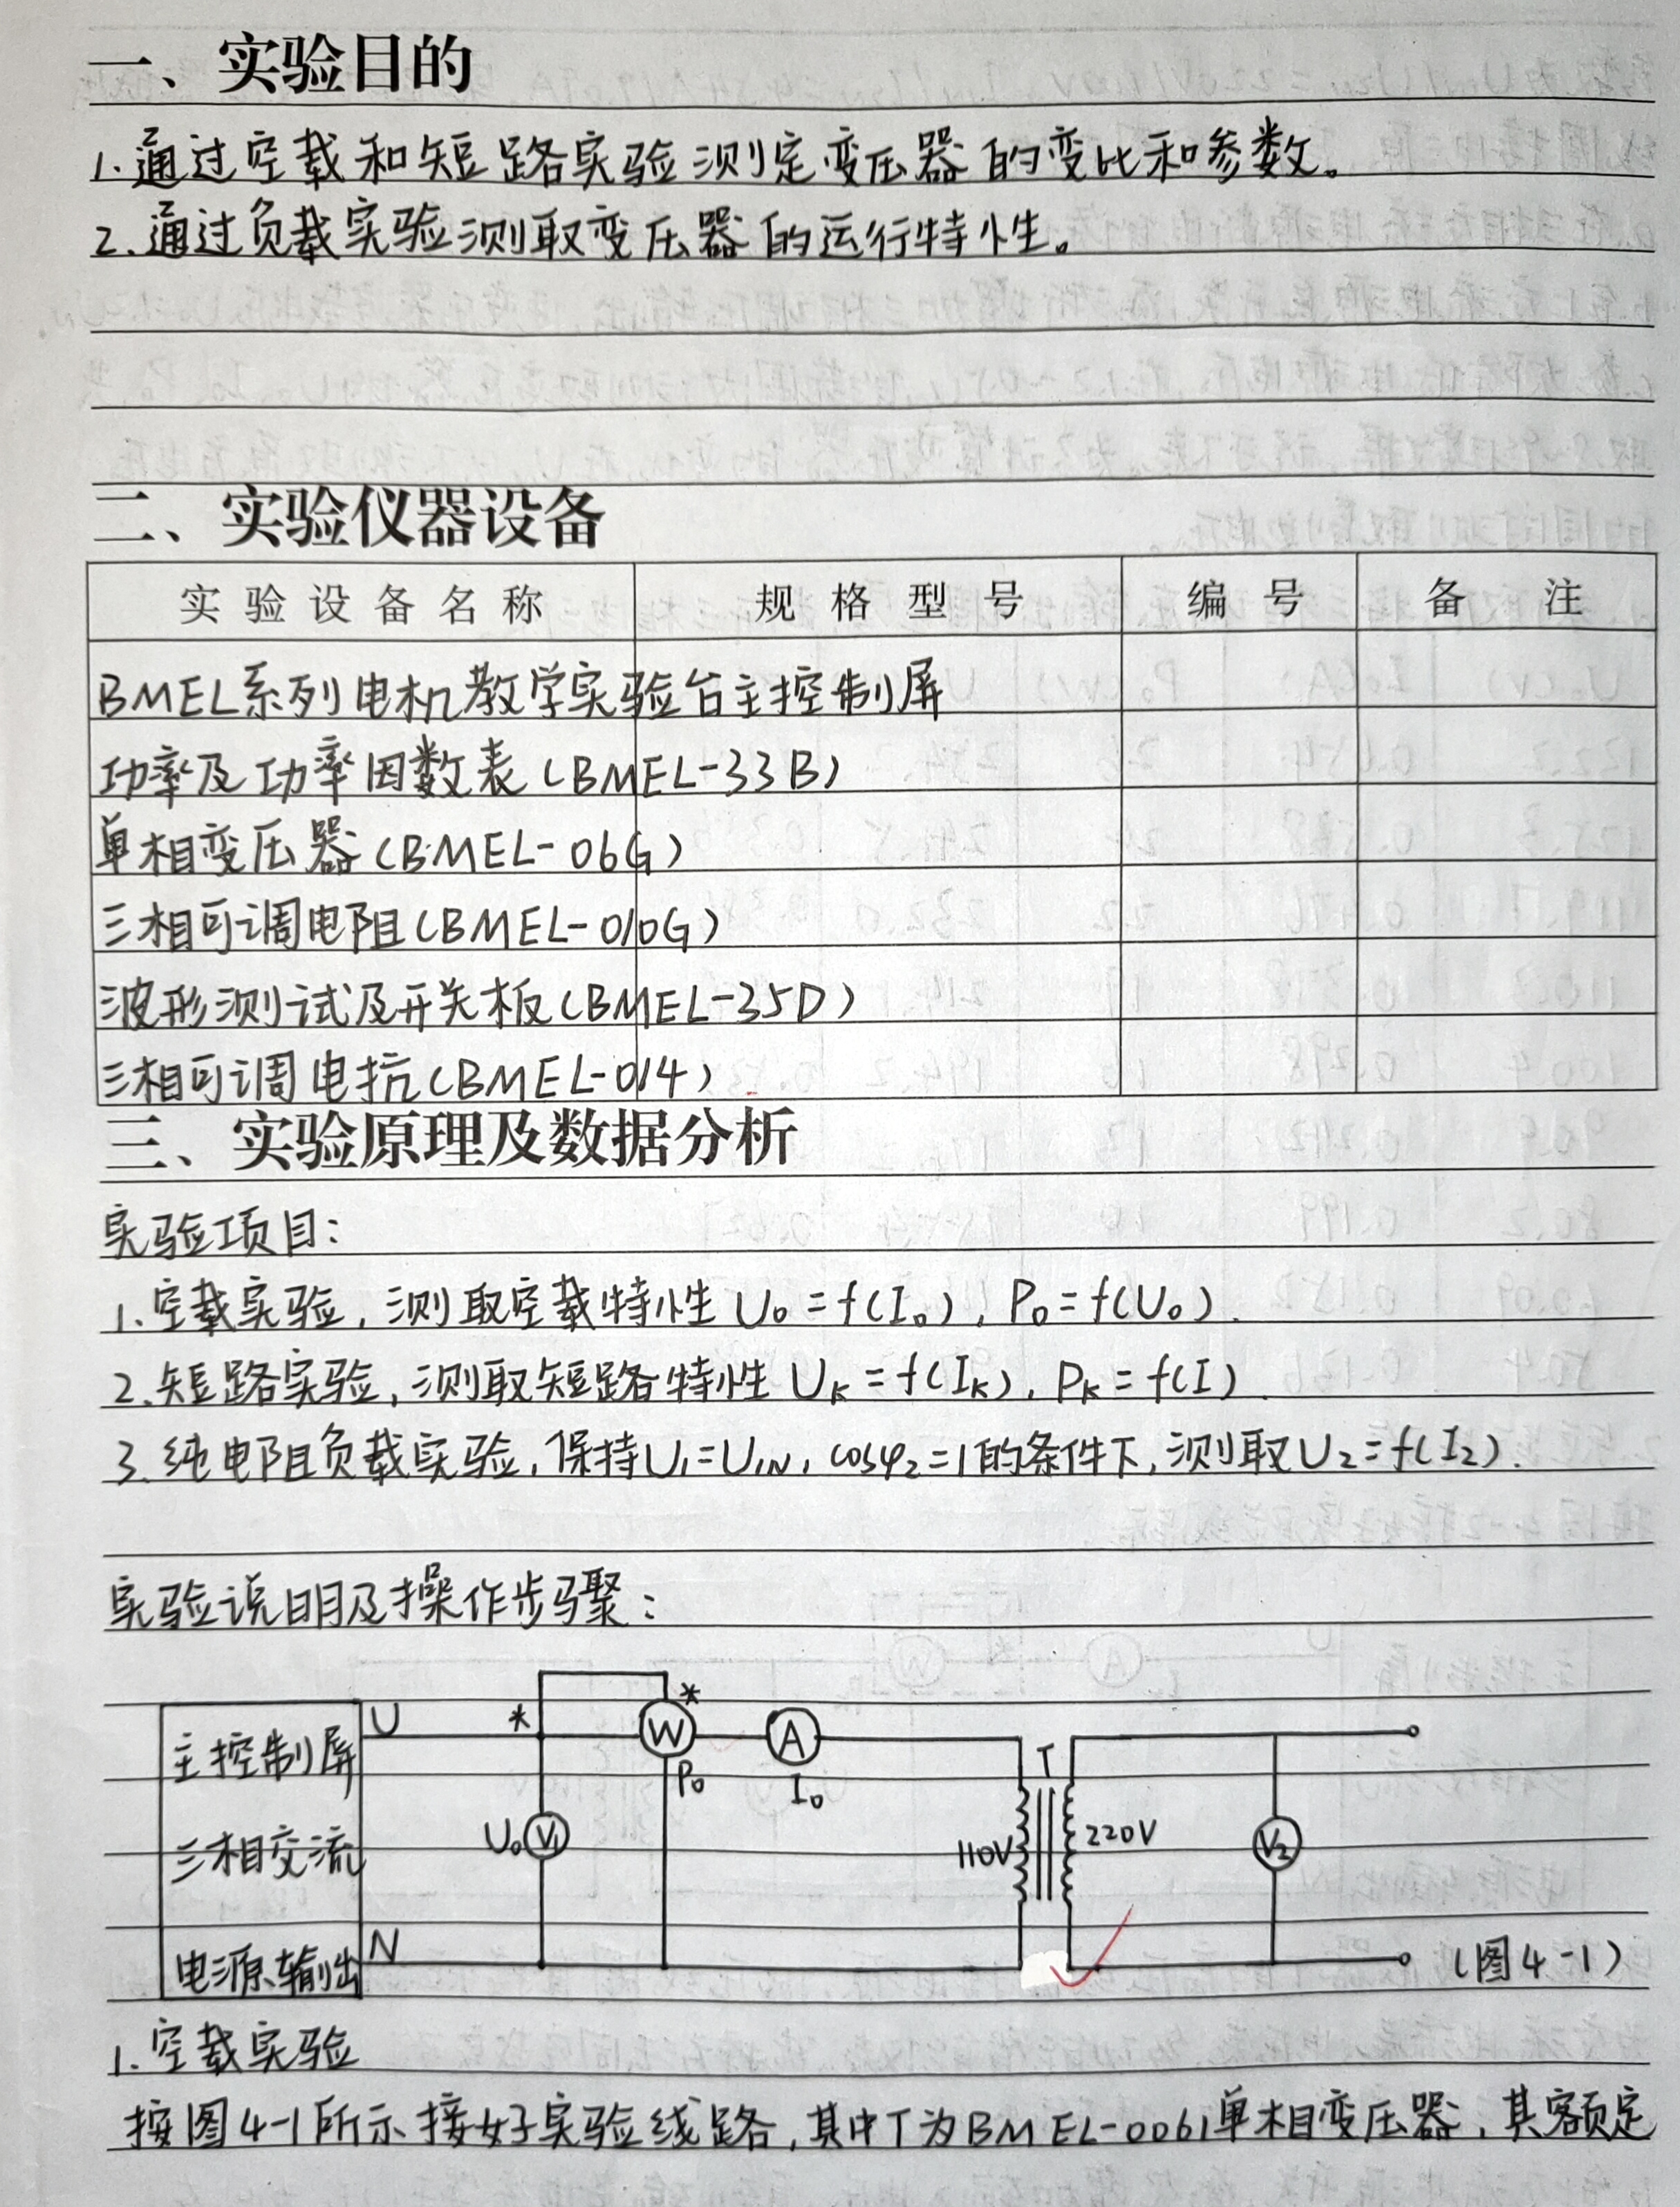 一、实验目的
1.通过空载和短路实验测定变压器的变比和参数。
2.通过负载实验测取变压器的运行特性。
二、实验仪器设备
实验设备名称 规格型号 编号 备注
BMEL系列电机教学实验台主控制屏
功率及功率因数表(BMEL-33B)
单相变压器(BMEL-06G)
三相可调电阻(BMEL-010G)
波形测试及开关板(BMEL-35D)
三相可调电抗(BMEL-014)
三、实验原理及数据分析
实验项目:
1.空载实验,测取空载特性 U₀=f(I₀), P₀=f(U₀).
2.短路实验,测取短路特性 Uₖ=f(Iₖ), Pₖ=f(I).
3.纯电阻负载实验,保持U₁=U₁N, cosφ₂=1的条件下,测取U₂=f(I₂).
实验说明及操作步骤:
主控制屏 U * W * A T
P₀ I₀
三相交流 U₀ V₁ 110V 220V V₂
电源输出 N (图4-1)
1.空载实验
按图4-1所示接好实验线路,其中T为BMEL-0061单相变压器,其额定